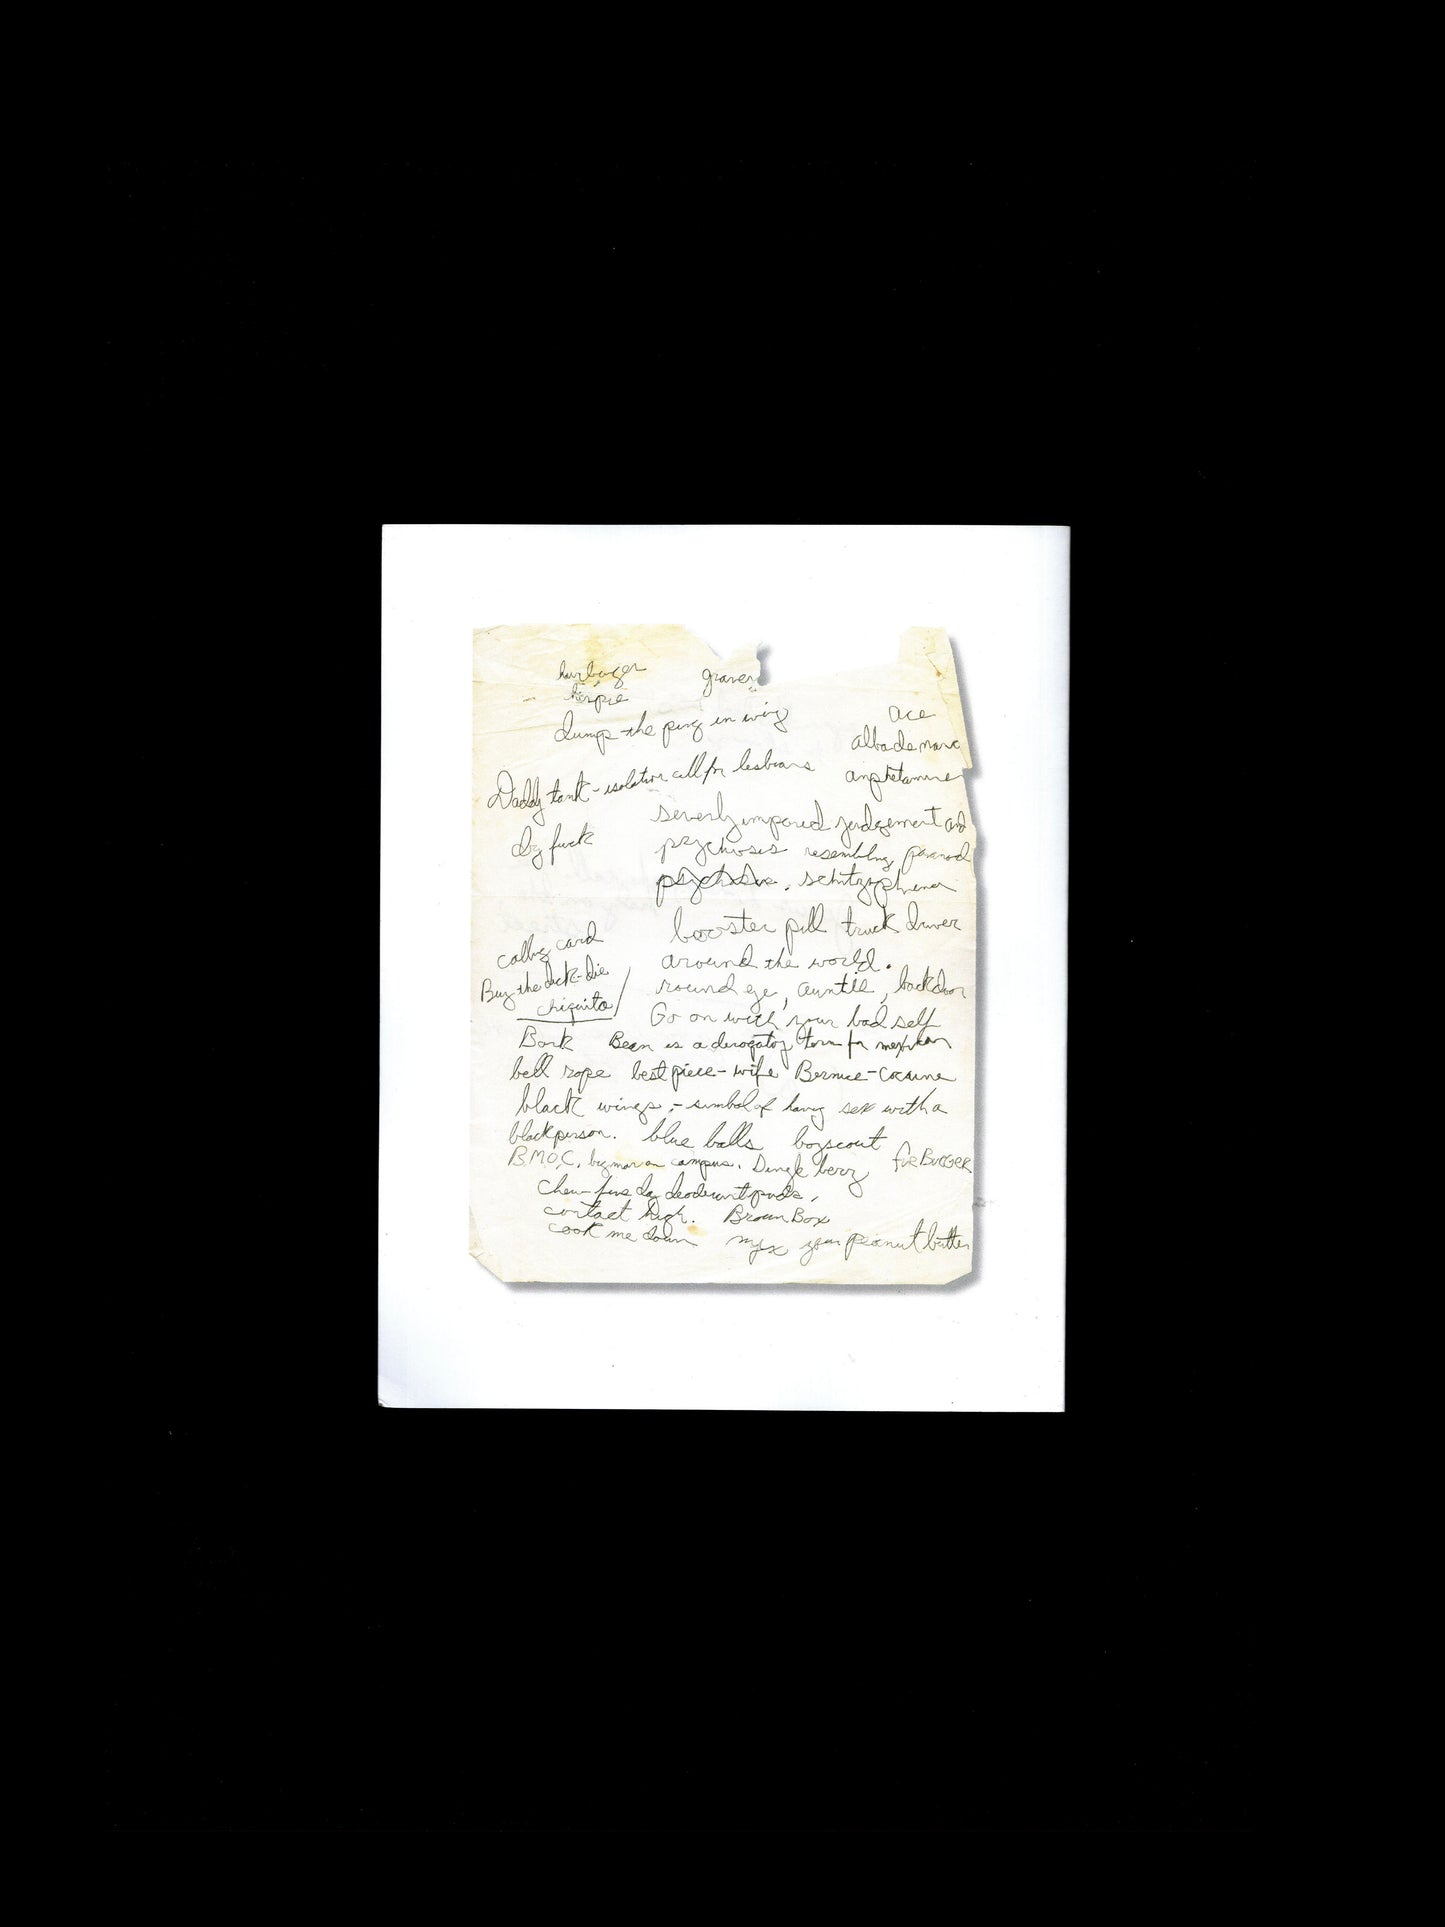 harbinger graver
herpie
dump the ping in wing ace
albade
Daddy tank - isolation cell for lesbians amphetamine
severly impared judgement and
dry fuck psychosis resembling paranod
schitzophrenia
booster pill truck driver
calling card around the world.
Buy the dick - die round eye, auntie, backdoor
chiquita Go on with your bad self
Bork Bean is a derogatory term for mexican
bell rope best piece - wife Bernice - Cocaine
black wings - simbol of having sex with a
black person. blue balls boyscout
B.M.O.C. big man on campus. Dingle berry
chew - five day deoderant pads,
contact high. Brown Box
cook me down your peanut butter